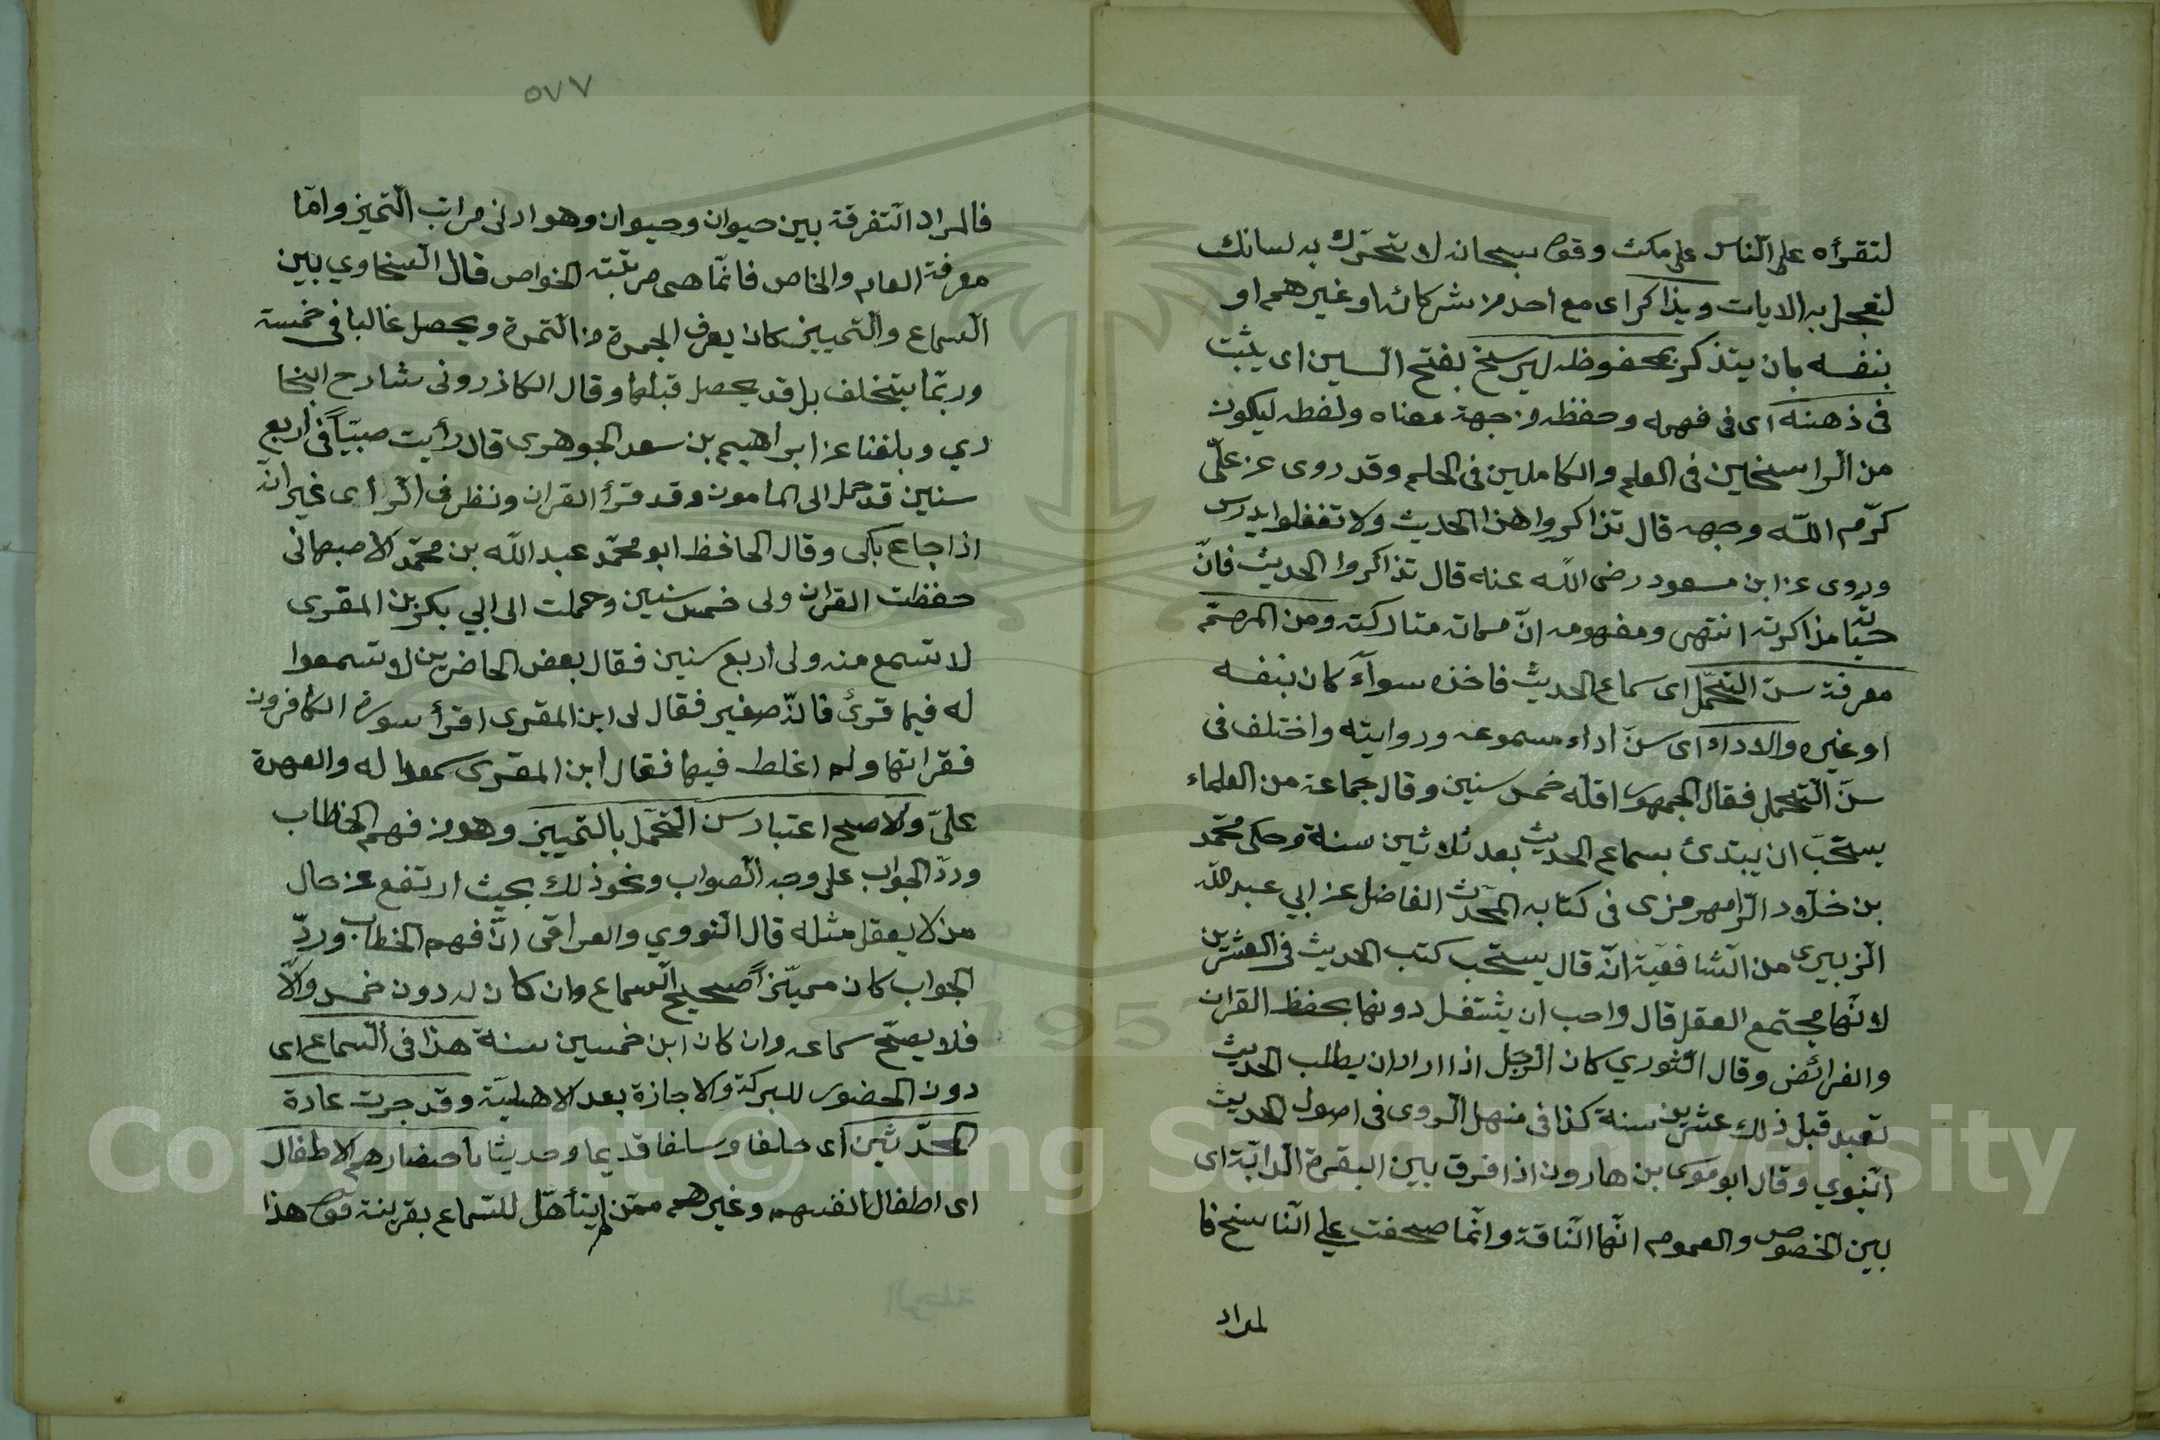 لتقرأه على الناس على مكث وقوله سبحانه لا تحرّك به لسانك
لتعجل به الايات ويذاكر اى مع احد من شركائه او غيرهم او
بنفسه بان يتذكر بمحفوظه ليرسخ بفتح السين اى يثبت
فى ذهنه اى فى فهمه وحفظه من جهة معناه ولفظه ليكون
من الراسخين فى العلم والكاملين فى الحلم وقد روى عن علىّ
كرّم اللّه وجهه قال تذاكروا هذا الحديث ولا تغفلوا يدرس
وروى عن ابن مسعود رضى اللّه عنه قال تذاكروا الحديث فانّ
حياته مذاكرته انتهى ومفهومه انّ مماته متاركته ومن المهمّ
معرفة سنّ التحمّل اى سماع الحديث فاخذه سوآء كان بنفسه
او غيره والاداء اى سنّ اداء مسموعه وروايته واختلف فى
سنّ التّحمل فقال الجمهور اقلّه خمس سنين وقال جماعة من العلماء
يستحبّ ان يبتدئ بسماع الحديث بعد ثلاثين سنة وحكى محمّد
بن خلّاد الرّامهرمزى فى كتابه المحدّث الفاضل عن ابي عبد اللّه
الزبيرى من الشافعيّة انّه قال يستحّب كتب الحديث فى العشرين
لانّها مجتمع العقل قال واحب ان يشتغل دونها بحفظ القران
والفرائض وقال الثوري كان الرّجل اذا اراد ان يطلب الحديث
تعبد قبل ذلك عشرين سنة كذا فى منهل الروى فى اصول الحديث
النّبوي وقال ابو موسى بن هارون اذا فرق بين البقرة الدّابّة اى
بين الخصوص والعموم انّها النّاقة وانّما صحفت على النّاسخ فا
لمراد
٥٧٧
فالمراد التّفرقة بين حيوان وحيوان وهو ادنى مراتب التّميز وامّا
معرفة العام والخاص فانّما هى مرتبة الخواص قال السّخاوي بين
السّماع والتّمييز كان يعرف الجمرة من التّمرة ويحصل غالبا فى خمسة
وربّما يتخلف بل قد يحصل قبلها وقال الكاذرونى شارح البخا
ري وبلغنا عن ابراهيم بن سعد الجوهرى قال رأيت صبيّاً فى اربع
سنين قد حمل الى المامون وقد قرأ القران ونظر فى الرأى غير انّه
اذا جاع بكى وقال الحافظ ابو محمّد عبد اللّه بن محمّد الاصبهانى
حفظت القران ولى خمس سنين وحملت الى ابي بكر بن المقرى
لا تسمع منه ولى اربع سنين فقال بعض الحاضرين لا تسمعوا
له فيما قرئ فانّه صغير فقال لى ابن المقرى اقرأ سورة الكافرون
فقراتها ولم اغلط فيها فقال ابن المقرى سمعوا له والعهدة
علىّ والاصح اعتبار سن التّحمّل بالتمييز وهو من فهم الخطاب
وردّ الجواب على وجه الصّواب ونحو ذلك بحيث ارتفع عن حال
من لا يعقل مثله قال النّووي والعراقى انّ فهم الخطاب وردّ
الجواب كان مميّزاً صحيح السّماع وان كان له دون خمس والّا
فلا يصحّ سماعه وان كان ابن خمسين سنة هذا فى السّماع اى
دون الحضور للبركة والاجازة بعد الاهليّة وقد جرت عادة
المحدّثين اى خلفا وسلفا قديما وحديثا باحضارهم الاطفال
اى اطفال انفسهم وغيرهم ممّن لم يتأهّل للسّماع بقرينة قوله هذا